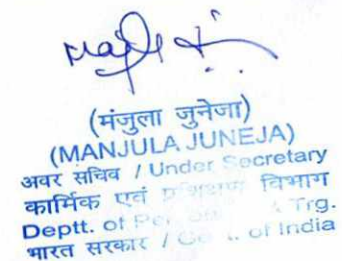 (मंजुला जुनेजा)
(MANJULA JUNEJA)
अवर सचिव / Under Secretary
कार्मिक एवं प्रशिक्षण विभाग
Deptt. of Trg.
भारत सरकार / of India